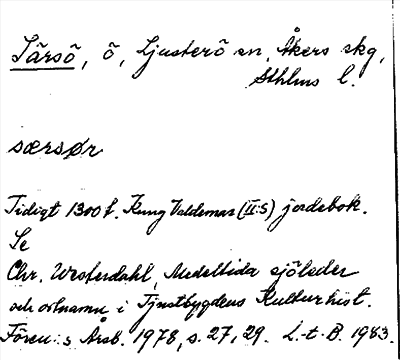 Särsö, ö, Ljusterö sn, Åkers skg,
Sthlms l.
særsør
Tidigt 1300 t. Kung Valdemar (II:s) jordebok.
Se
Chr. Westerdahl, Medeltida sjöleder
och ortnamn i Tjustbygdens Kulturhist.
Fören:s Årsb. 1978, s. 27, 29. L.-t. B. 1983.